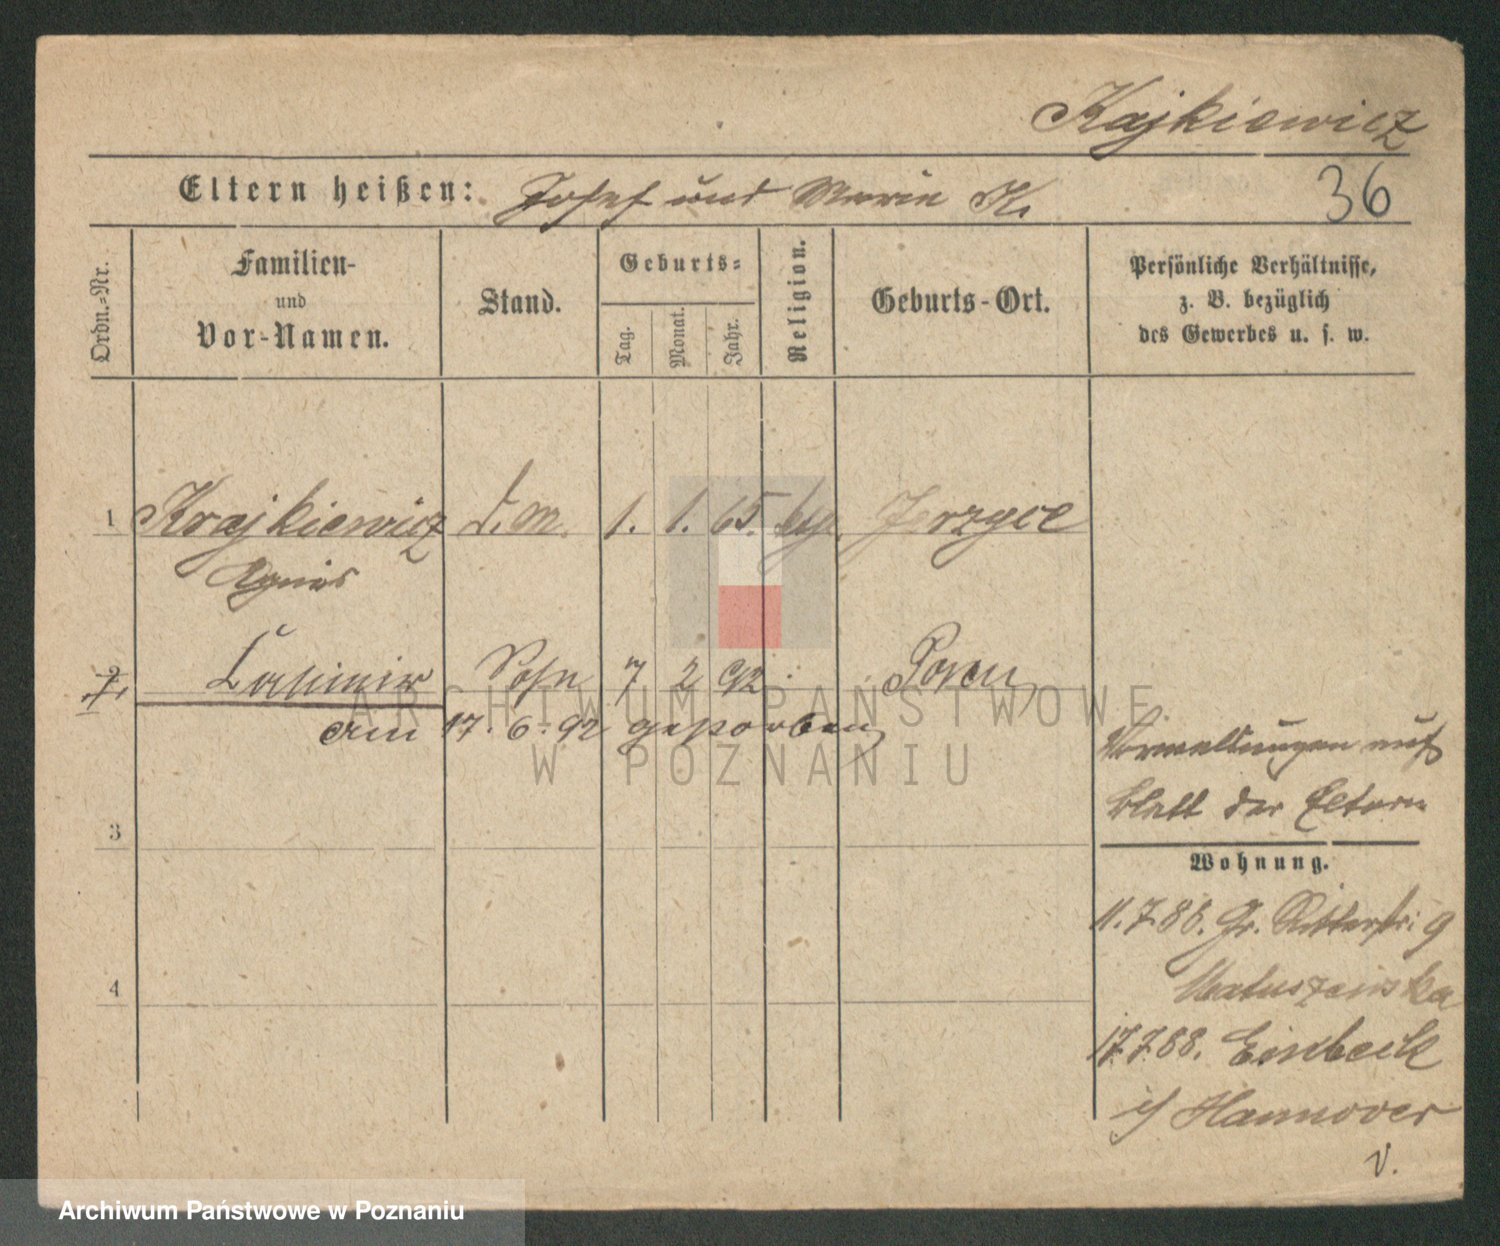 Kajkiewicz
36
Eltern heißen: Josef und Marie K.
Ordn.-Nr.
Familien-
und
Vor-Namen.
Stand.
Geburts-
Tag.
Monat.
Jahr.
Religion.
Geburts-Ort.
Persönliche Verhältnisse,
z. B. bezüglich
des Gewerbes u. s. w.
1 Krajkiewicz 1. 1. 65. Jerzyce
Agnes
2 Casimir Sohn 7 2 92. Posen
am 17. 6. 92 gestorben
auf
Blatt der Eltern
3
Wohnung.
11.7.86. Gr. Ritterstr: 9
4
17.7.88. Einbeck
i/ Hannover
v.
ARCHIWUM PAŃSTWOWE
W POZNANIU
Archiwum Państwowe w Poznaniu